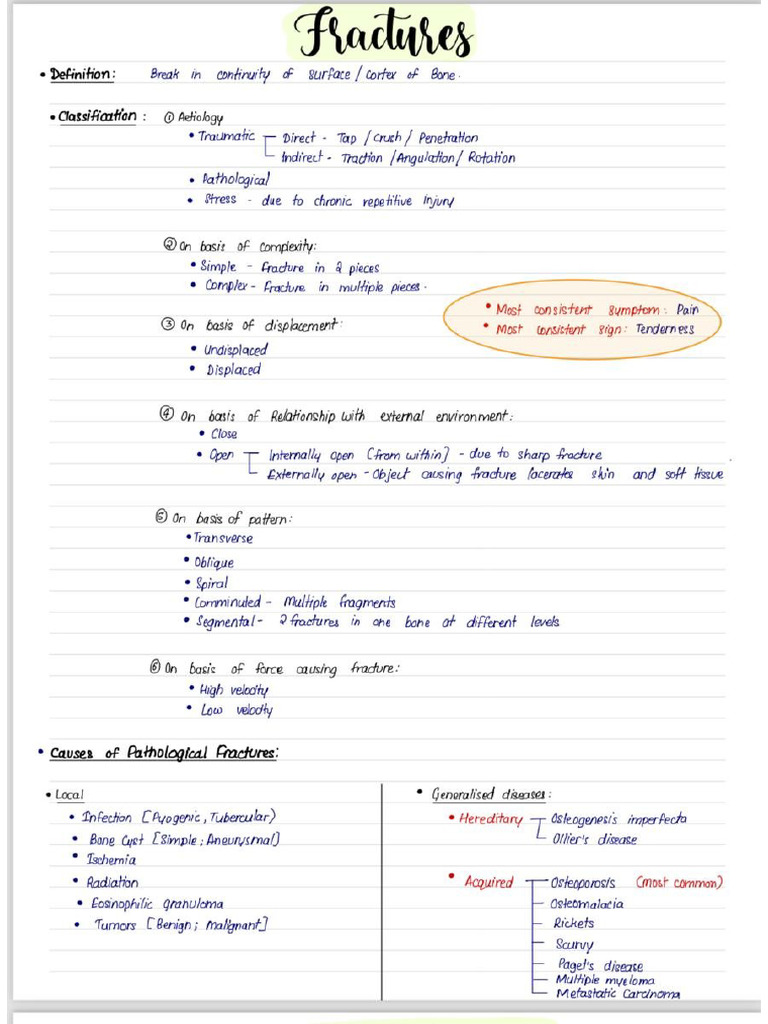 Fractures
• Definition: Break in continuity of surface / Cortex of Bone.
• Classification: ① Aetiology
• Traumatic Direct - Tap / crush / Penetration
Indirect - Traction / Angulation / Rotation
• Pathological
• Stress - due to chronic repetitive Injury
② On basis of complexity:
• Simple - fracture in 2 pieces
• Complex - Fracture in multiple pieces.
• Most consistent symptom: Pain
• Most consistent sign: Tenderness
③ On basis of displacement:
• Undisplaced
• Displaced
④ On basis of Relationship with external environment:
• Close
• Open Internally open [from within] - due to sharp fracture
Externally open - Object causing fracture lacerates skin and soft tissue
⑤ On basis of pattern:
• Transverse
• Oblique
• Spiral
• Comminuled - Multiple fragments
• Segmental - 2 fractures in one bone at different levels
⑥ On basis of force causing fracture:
• High velocity
• Low velocity
• Causes of Pathological Fractures:
• Local
• Infection [Pyogenic, Tubercular)
• Bone Cyst [Simple; Aneurysmal]
• Ischemia
• Radiation
• Eosinophilic granuloma
• Tumors [Benign; malignant]
• Generalised diseases:
• Hereditary Osteogenesis imperfecta
Ollier's disease
• Acquired Osteoporosis (most common)
Osteomalacia
Rickets
Scurvy
Paget's disease
Multiple myeloma
Metastatic Carcinoma